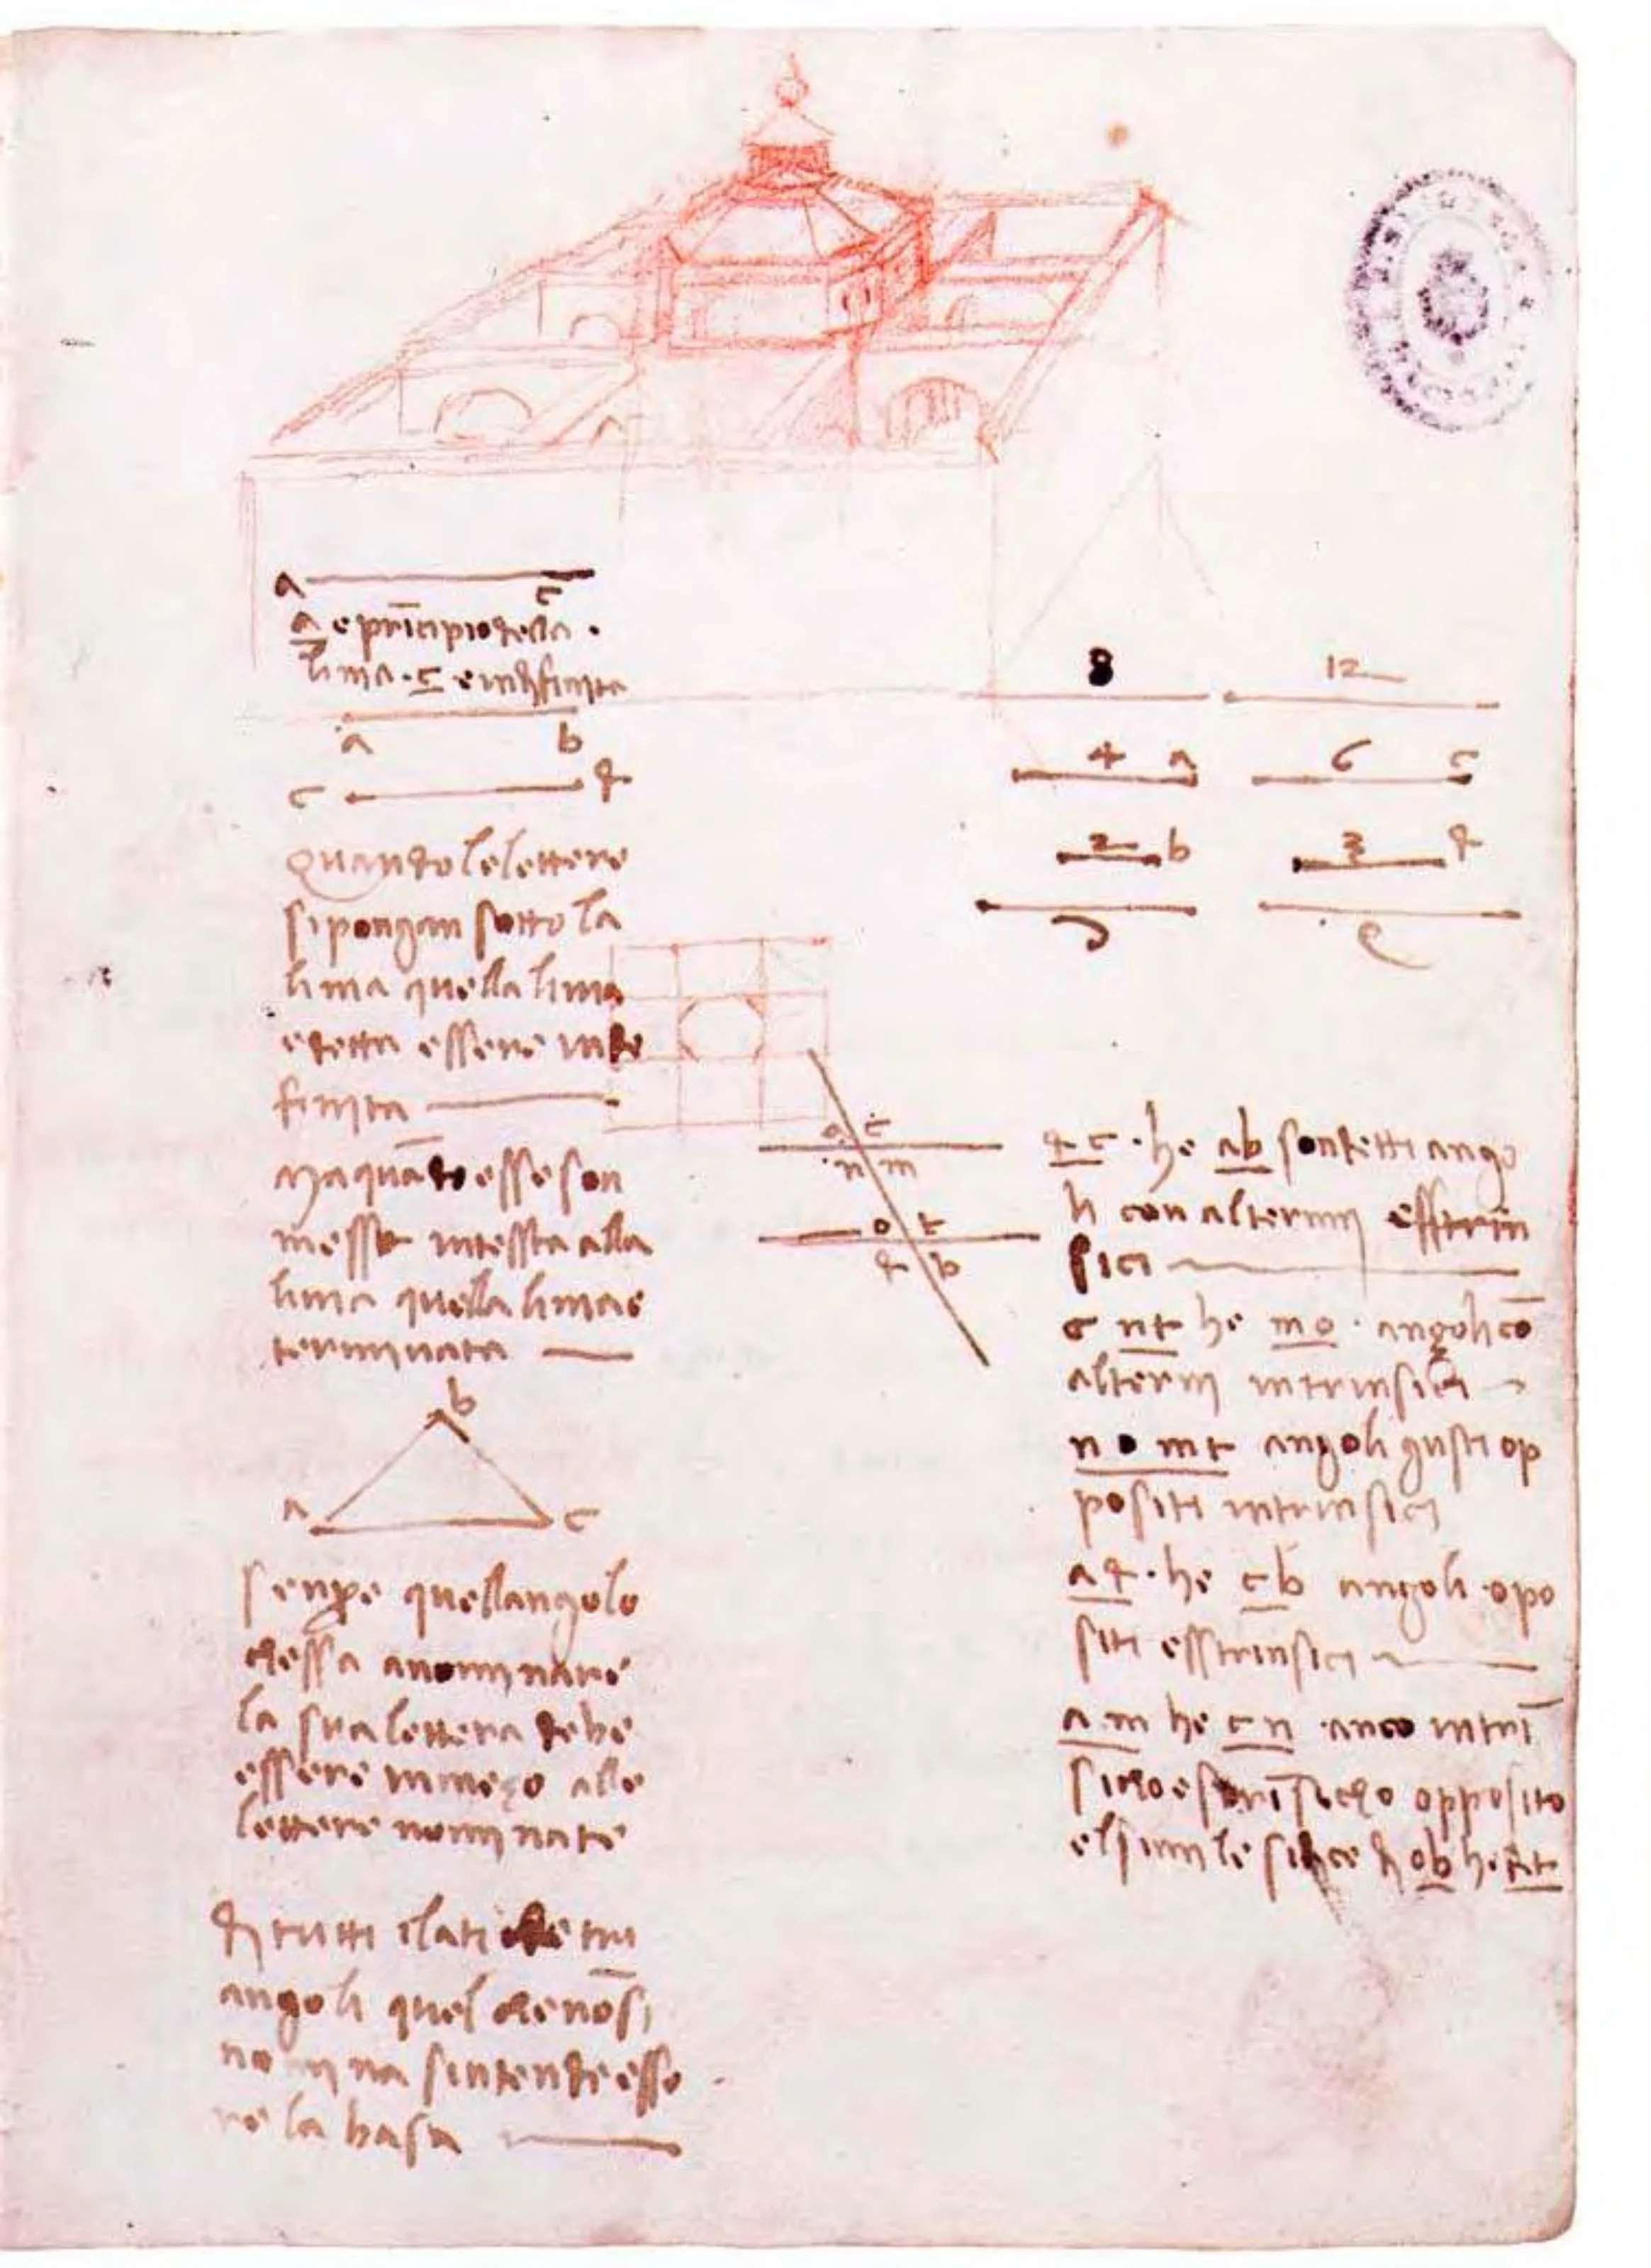 a
c
a e prīcipio della
linia · c e indifinita
a b
c d
Quando le lettere
si pongan sotto la
linia quella linia
e detta essere inde
finita
Ma quādo esse son
messe intessta alla
linia quella linia e
terminata
b
a c
senpre quellangolo
chessa anominare
la sua lettera debe
essere inmezo alle
lettere nominate
di tutti ilati de tri
angoli quel che nōsi
nomina sintende esse
re la basa
8 12
4 a 6 c
2 b 3 d
a c
n m
o t
d b
he ab son detti ango
li con alternj esstrin
sici
nt he mo · angoli cō
alternj intrinsici
n o m t angoli giusti op
positi intrinsici
a d · he c b angoli opo
siti esstrinsici
a m he c n anco intrī
sicho e strīsecho opposito
el simile si dice di ob he dt